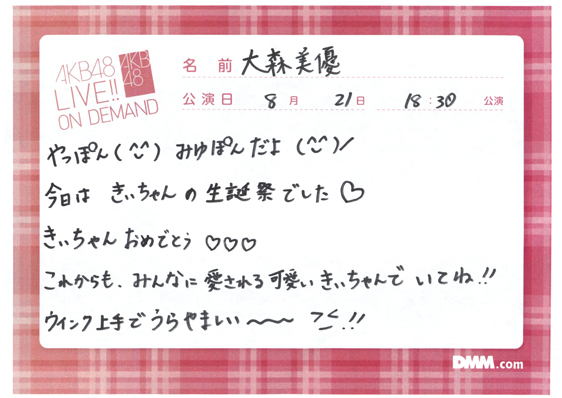 AKB48
LIVE!!
ON DEMAND
AKB
48
名 前 大森美優
公演日 8月 21日 18:30 公演
やっぽん(^^) みゆぽんだよ (^^)/
今日は きぃちゃん の 生誕祭でした♡
きぃちゃん おめでとう ♡♡♡
これからも、みんなに 愛される 可愛い きぃちゃんで いてね!!
ウインク上手で うらやましい〜〜 >_<!!
DMM.com